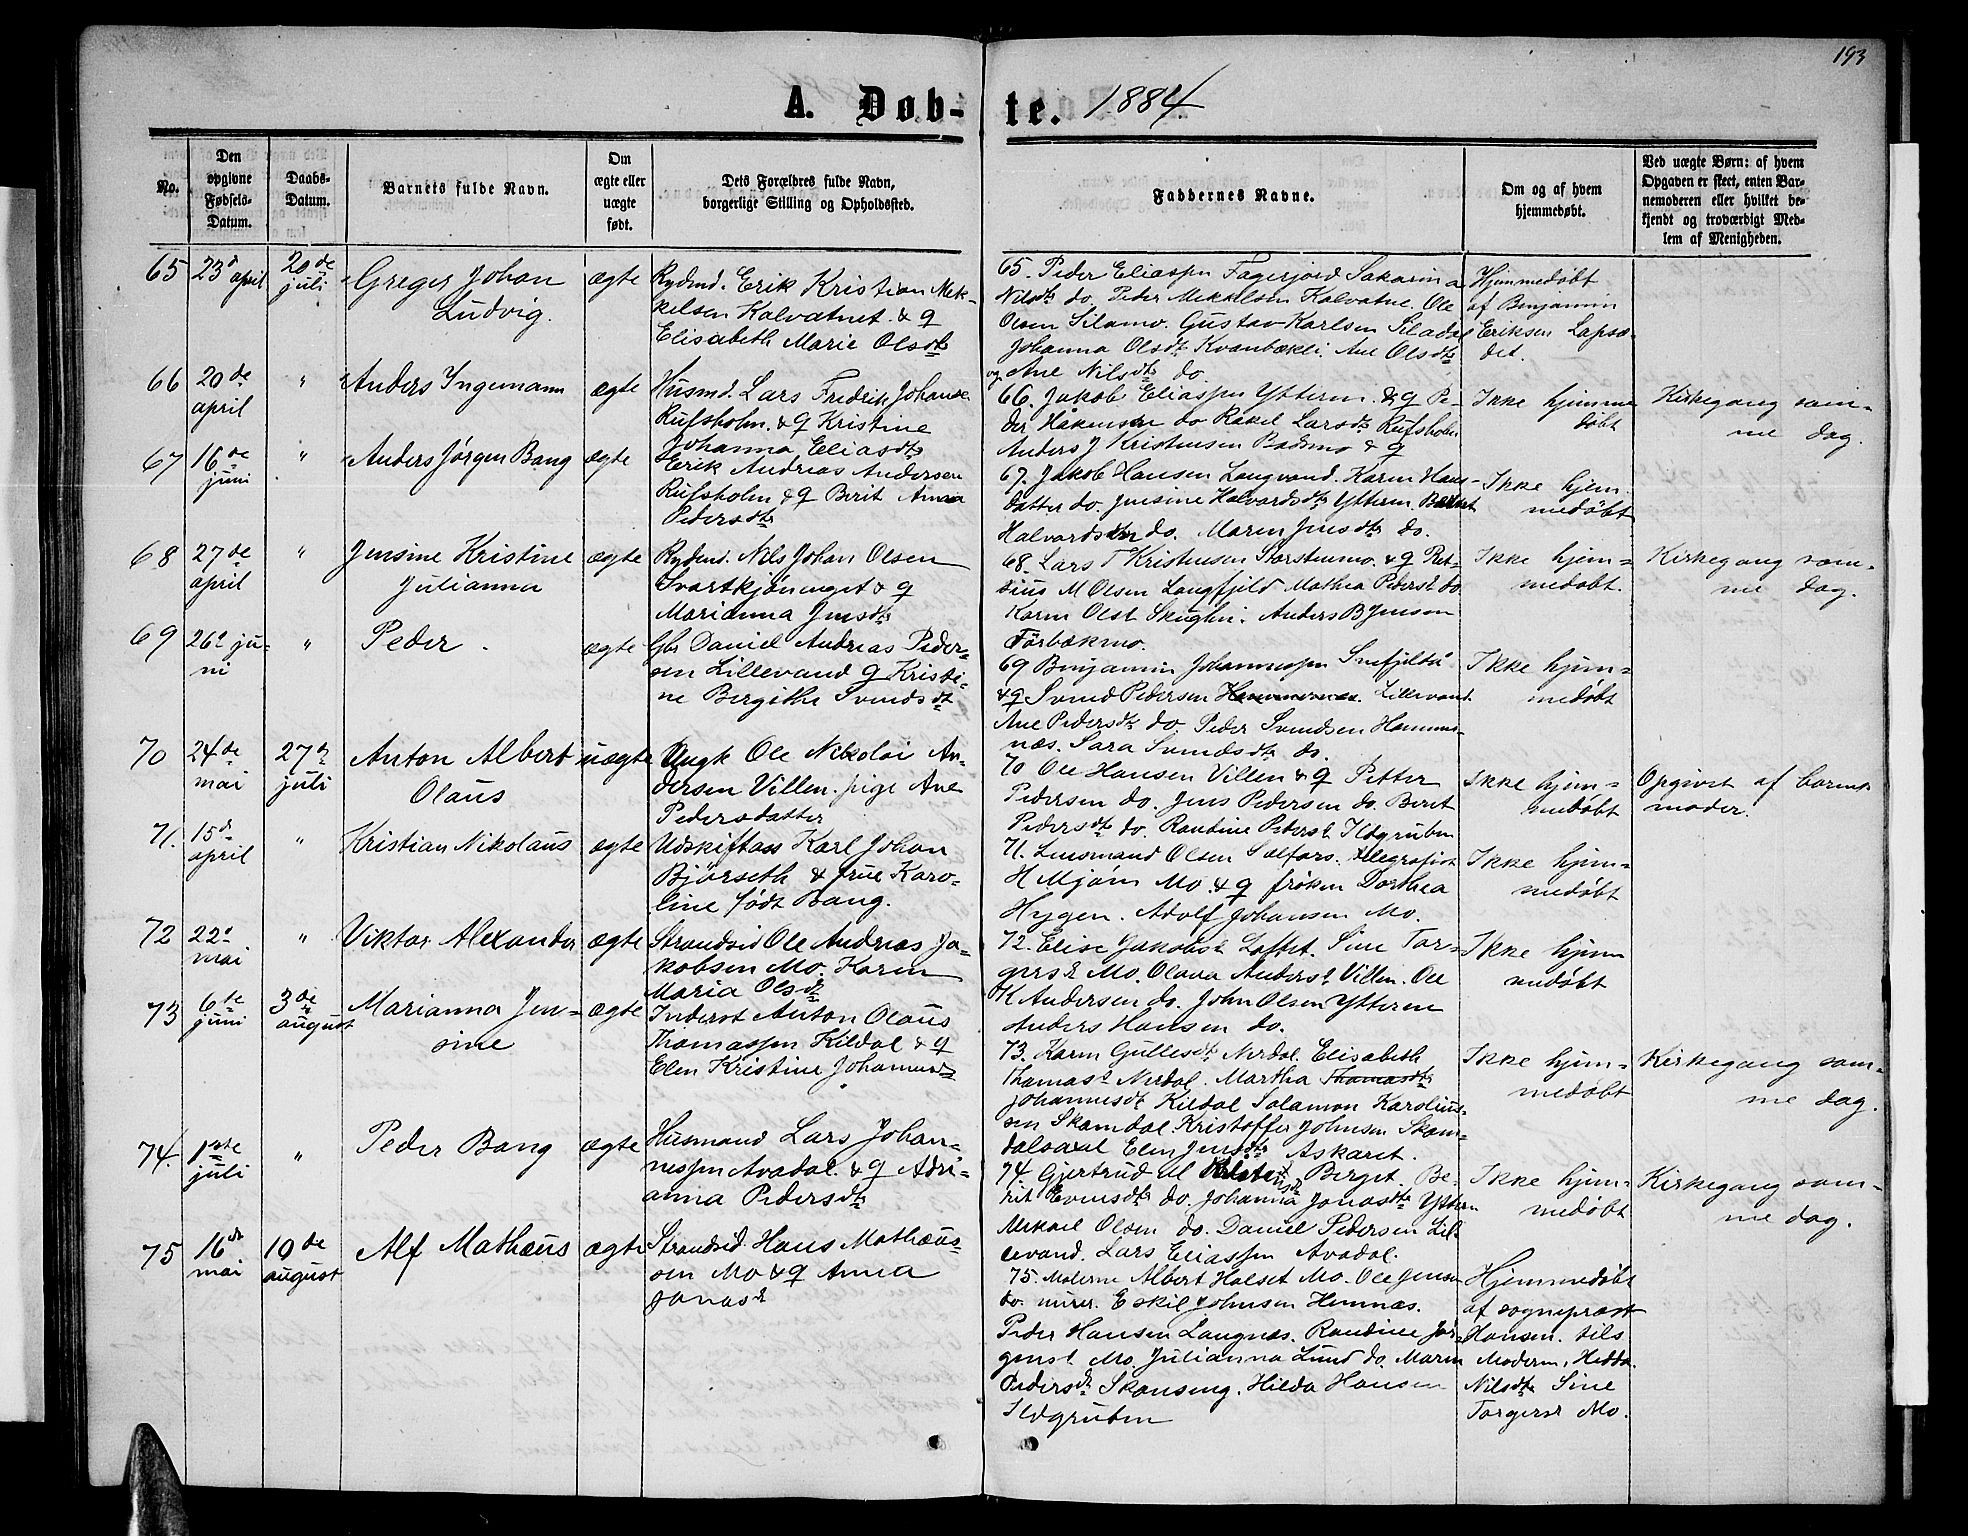 193
A. Døb-te. 1884
No.
Den opgivne Fødsels-Datum.
Daabs-Datum.
Barnets fulde Navn.
Om ægte eller uægte født.
Dets Forældres fulde Navn, borgerlige Stilling og Opholdssted.
Faddernes Navne.
Om og af hvem hjemmedøbt.
Ved uægte Børn: af hvem Opgaven er skeet, enten Barnemoderen eller hvilket bekjendt og troværdigt Medlem af Menigheden.
65 23d april 20de juli Greger Johan Ludvig. ægte
Rydnd. Erik Kristian Mek-
kelsen Kalvatnet & q
Elisabeth Marie Olsdtr
65. Peder Eliassen Fagerjord Sakarina
Nilsdtr do. Peder Mekkelsen Kalvatne Ole
Olsen Silamo. Gustav Karlsen Siladal
Johanna Olsdtr Kvanbækli. Ane Olsdtr
og Ane Nilsdtr do
Hjemmedøbt
af Benjamin
Eriksen Lapsæ-
det.
66 20de april " Anders Ingemann ægte
Husmd. Lars Fredrik Johanse
Rufsholm. & q Kristine
Johanna Eliasdtr
66. Jakob Eliassen Ytteren. & q Pe-
der Håkensen do Rakel Larsdtr Rufsholm
Anders J Kristensen Badsmo & q
Ikke hjemme
døbt
Kirkegang sam-
me dag.
67 16de juni " Anders Jørgen Bang ægte
Erik Andreas Andersen
Rufsholm & q Berit Anna
Pedersdtr
67. Jakob Hansen Langvand. Karen Hans-
datter do. Jensine Halvardsdtr Ytteren Berent
Halvardsen do. Maren Jensdtr do.
Ikke hjem
medøbt
68 27de april " Jensine Kristine Julianna ægte
Rydnd. Nils Johan Olsen
Svartkjönenget & q
Marianna Jensdtr
68. Lars T Kristensen Storstenmo. & q Pet-
sius M Olsen Langfjeld Mathea Pederst do
Karen Olst Skuglin. Anders B Jensen
Förbækmo.
Ikke hjem-
medøbt.
Kirkegang sam-
me dag.
69 26d juni " Peder. ægte
Gbr Daniel Andreas Peder-
sen Lillevand q Kristi-
ne Bergithe Svendsdt
69 Benjamin Johannessen Snefjeldå
& q Svend Pedersen Lillevand
Ane Pedersdtr do. Peder Svendsen Hemmes-
næs. Sara Svendsdtr do.
Ikke hjem-
medøbt
70 24de mai 27d juli Anton Albert Olaus uægte
Ungk Ole Nikolai An-
dersen Villen. pige Ane
Pedersdatter
70 Ole Hansen Villen & q Petter
Pedersen do. Jens Pedersen do. Beret
Pedersdtr do. Randine Pederst Ildgruben
Ikke hjem-
medøbt
Opgivet af barnes
moder.
71. 15d april " Kristian Nikolaus ægte
Udskiftass Karl Johan
Bjørseth & frue Karo-
line født Bang.
71. Lensmand Olsen Selfors. telegrafist
H Mjøen Mo & q frøken Dorthea
Hygen. Adolf Johansen Mo.
Ikke hjem-
medøbt
72 22d mai " Viktor Alexander ægte
Strandsid Ole Andreas Ja-
kobsen Mo. Karen
Maria Olsdt
72. Elise Jakobst Loftet. Sine Tor-
gerst Mo. Olava Anderst Villen. Ole
K Andersen do. John Olsen Ytteren
Anders Hansen do.
Ikke hjem
medøbt
73 6te juni 3de august Marianna Jen-sine ægte
Inderst Anton Olaus
Thomassen Kildal & q
Elen Kristine Johannesd
73. Karen Gullesdt Nerdal. Elisabeth
Thomast Nerdal. Martha Thomasdtr
Johannesdt Kildal Salamon Karolius-
sen Skamdal. Kristoffer Johnsen Skam-
dalsaxel Elen Jensdtr Askaret.
Ikke hjem-
medøbt
Kirkegang sam-
me dag.
74. 1ste juli " Peder Bang ægte
Husmand Lars Johan-
nessen Avadal. & q Adri-
anna Pedersdtr
74. Gjertrud M Berget. Be-
rit Evensdtr do. Johanna Jonasdtr Ytteren
Mekael Olsen do. Daniel Pedersen Lil-
levand. Lars Eliassen Avadal.
Ikke hjem-
medøbt
Kirkegang sam-
me dag.
75 16de mai 10de august Alf Mathæus ægte
Strandsid. Hans Mathæus-
sen Mo & q Anna
Jonast
75. Malerne Albert Halset Mo. Ole Jensen
do. murer. Eskil Johnsen Hemnæs.
Peder Hansen Langnæs. Randine Jør-
genst Mo. Julianna Lund do. Maren
Pedersdt Skonseng. Hilda Hansen
Ildgruben
Hjemmedøbt
af sognepræst
Hansen. tils
Moderen, Hedda
Nilsdtr Sine
Torgerst Mo.